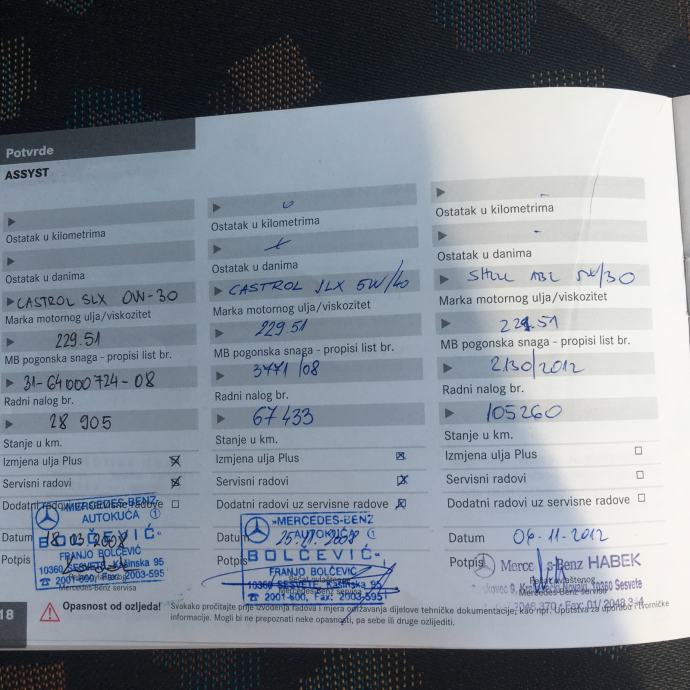 Potvrde
ASSYST
Ostatak u kilometrima
Ostatak u danima
CASTROL SLX 0W-30
Marka motornog ulja/viskozitet
229.51
MB pogonska snaga - propisi list br.
31-64000724-08
Radni nalog br.
28 905
Stanje u km.
Izmjena ulja Plus
Servisni radovi
Dodatni radovi uz servisne radove
MERCEDES-BENZ
AUTOKUĆA
BOLČEVIĆ
Datum 03 2008
Potpis
FRANJO BOLČEVIĆ
10360 SESVETE, Kašinska 95
☎ 2001-600, Fax: 2003-595
Mercedes-Benz servisa
Ostatak u kilometrima
Ostatak u danima
CASTROL SLX 5W/40
Marka motornog ulja/viskozitet
229.51
MB pogonska snaga - propisi list br.
3771/08
Radni nalog br.
67 433
Stanje u km.
Izmjena ulja Plus
Servisni radovi
Dodatni radovi uz servisne radove
»MERCEDES-BENZ
AUTOKUĆA
Datum 2008
BOLČEVIĆ«
Potpis
FRANJO BOLČEVIĆ
10360 SESVETE, Kašinska 95
☎ 2001-600, Fax: 2003-595
Mercedes-Benz servisa
-
Ostatak u kilometrima
-
Ostatak u danima
5W/30
Marka motornog ulja/viskozitet
229.51
MB pogonska snaga - propisi list br.
2130/2012
Radni nalog br.
105260
Stanje u km.
Izmjena ulja Plus
Servisni radovi
Dodatni radovi uz servisne radove
Datum 06-11-2012
Potpis
Mercedes-Benz HABEK
10360 Sesvete
Mercedes-Benz servisa
Fax: 01/
18
Opasnost od ozljeda!
Svakako pročitajte prije izvođenja radova i mjera održavanja dijelove tehničke dokumentacije, kao npr. Uputstva za uporabu i tvorničke
informacije. Mogli bi ne prepoznati neke opasnosti, pa sebe ili druge ozlijediti.